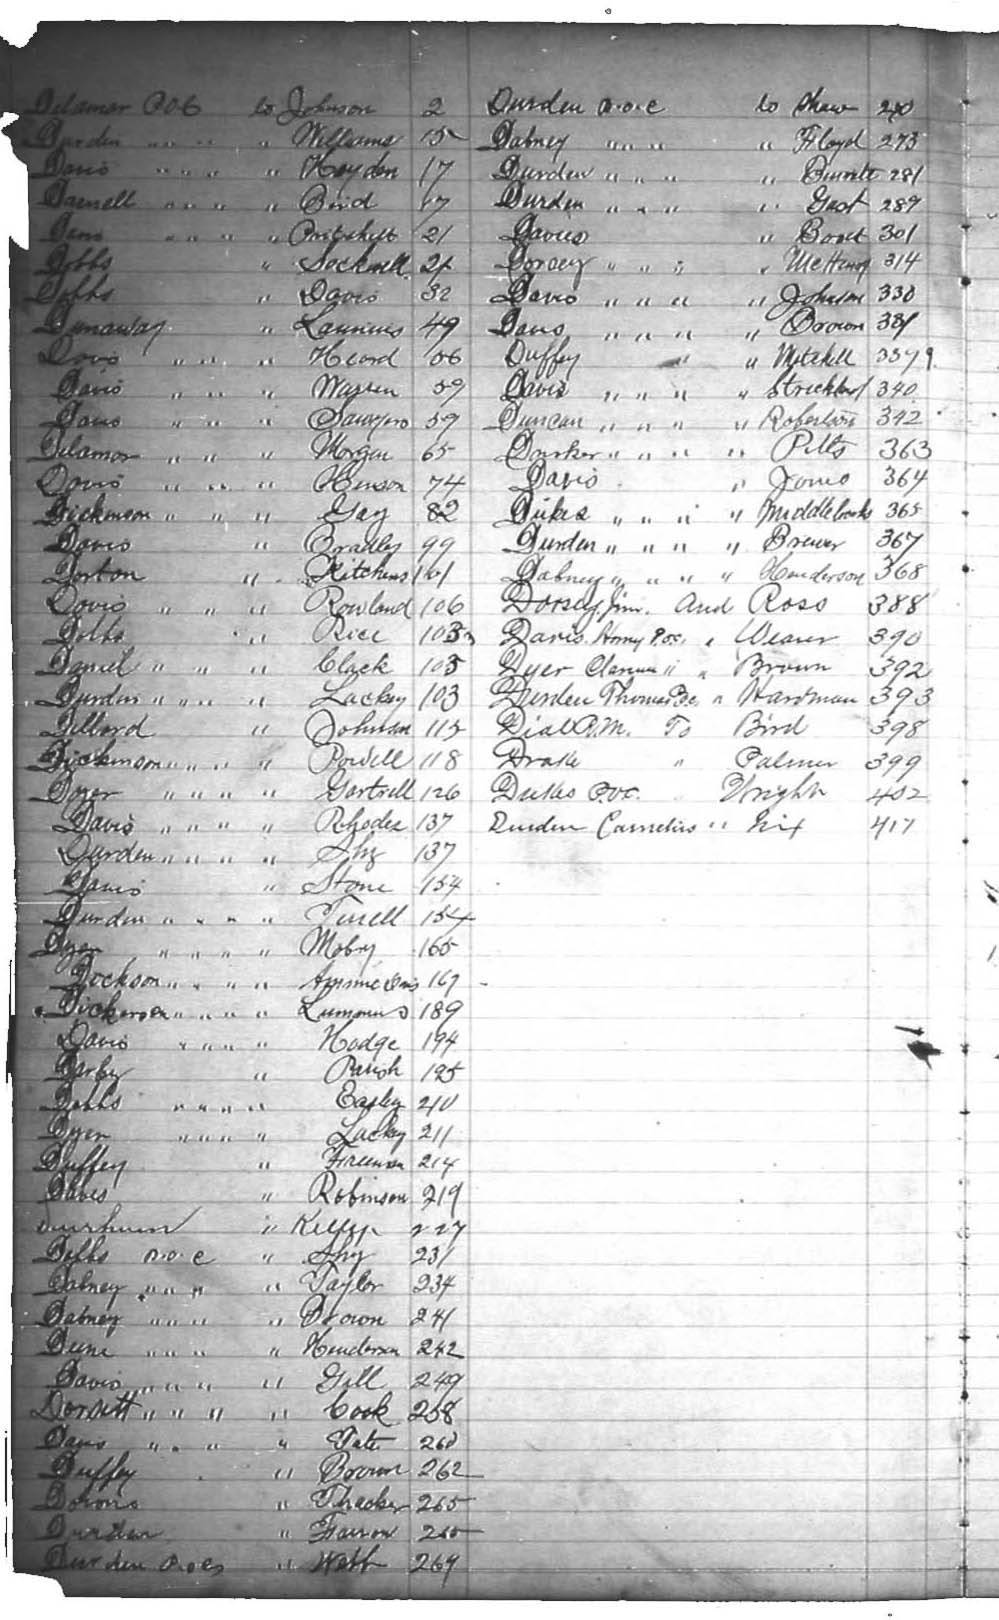 Delamar P.O.C to Johnson 2
Durden " " " " Williams 15
Davis " " " " Hayden 17
Darnell " " " " Bird 17
Davis " " " " 21
Dobbs " Sockwell 24
Dobbs " Davis 32
Dunaway " 49
Davis " " " Heard 56
Davis " " " Warren 59
Davis " " " Sawyers 59
Delamar " " " Morgan 65
Davis " " " Henson 74
Dickinson " " " Gay 82
Davis " Bradley 99
Dorton " Kitchens 101
Davis " " " Rowland 106
Dobbs " Rice 103
Daniel " " " " Clack 103
Durden " " " " Lackey 103
Dillard " Johnson 115
Dickinson " " " " Powell 118
Dozer " " " " Gartrell 126
Davis " " " " Rhodes 137
Darden " " " " Shy 137
Davis " Stone 154
Durden " " " " Terrell 154
Dyer " " " " Mobry 165
Dockson " " " " 167
Dickerson " " " " Lummus 189
Davis " " " " Hodge 194
Darby " Parish 195
Dobbs " " " " Easley 210
Dyer " " " " Lackey 211
Duffey " Freeman 214
Daves " Robinson 219
Durham " 227
Dobbs P.O.C " Shy 231
Dabney " " " " Taylor 234
Dabney " " " " Brown 241
" " " " Henderson 242
Davis " " " " Gill 249
Dorsett " " " " Cook 258
Davis " " " " Tate 260
Duffey " Brown 262
" Thacker 265
Durden " 265
Durden P.O.C " Webb 269
Durden P.O.C to Shaw 270
Dabney " " " " Floyd 273
Durden " " " " 281
Durden " " " " Gast 289
Davies " 301
Dorsey " " " " McHenry 314
Davis " " " " Johnson 330
Davis " " " " Brown 331
Duffey " " Mitchell
Davis " " " " Strickland 340
Duncan " " " " Robertson 342
" " " " Pitts 363
Davis " Jones 364
Dukes " " " " Middlebrooks 365
Durden " " " " Brewer 367
Dabney " " " " Henderson 368
Dorsey, Jim. And Ross 388
Davis, Henry P.O.C. " Weaver 390
Dyer Clarence " " Brown 392
Durden Thomas P.O.C. " Hardman 393
Diall P.M. To Bird 398
Drake " Palmer 399
Dukes P.O.C. Wright 402
Durden Cornelius " Nix 417